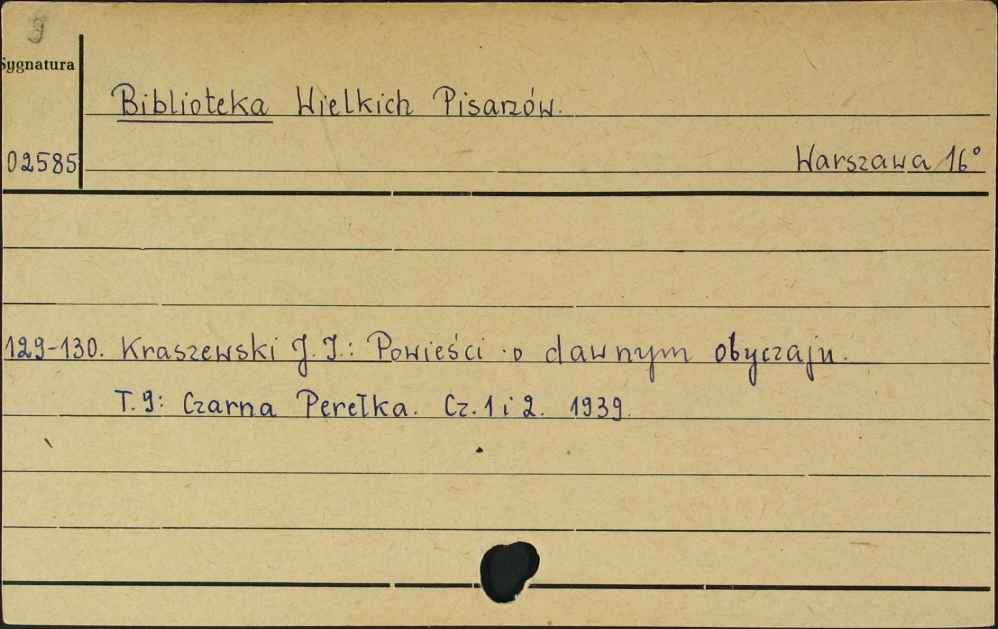 9
Sygnatura
Biblioteka Wielkich Pisarzów.
02585
Warszawa 16°
129-130. Kraszewski J. I.: Powieści o dawnym obyczaju.
T. 9: Czarna Perełka. Cz. 1 i 2. 1939.